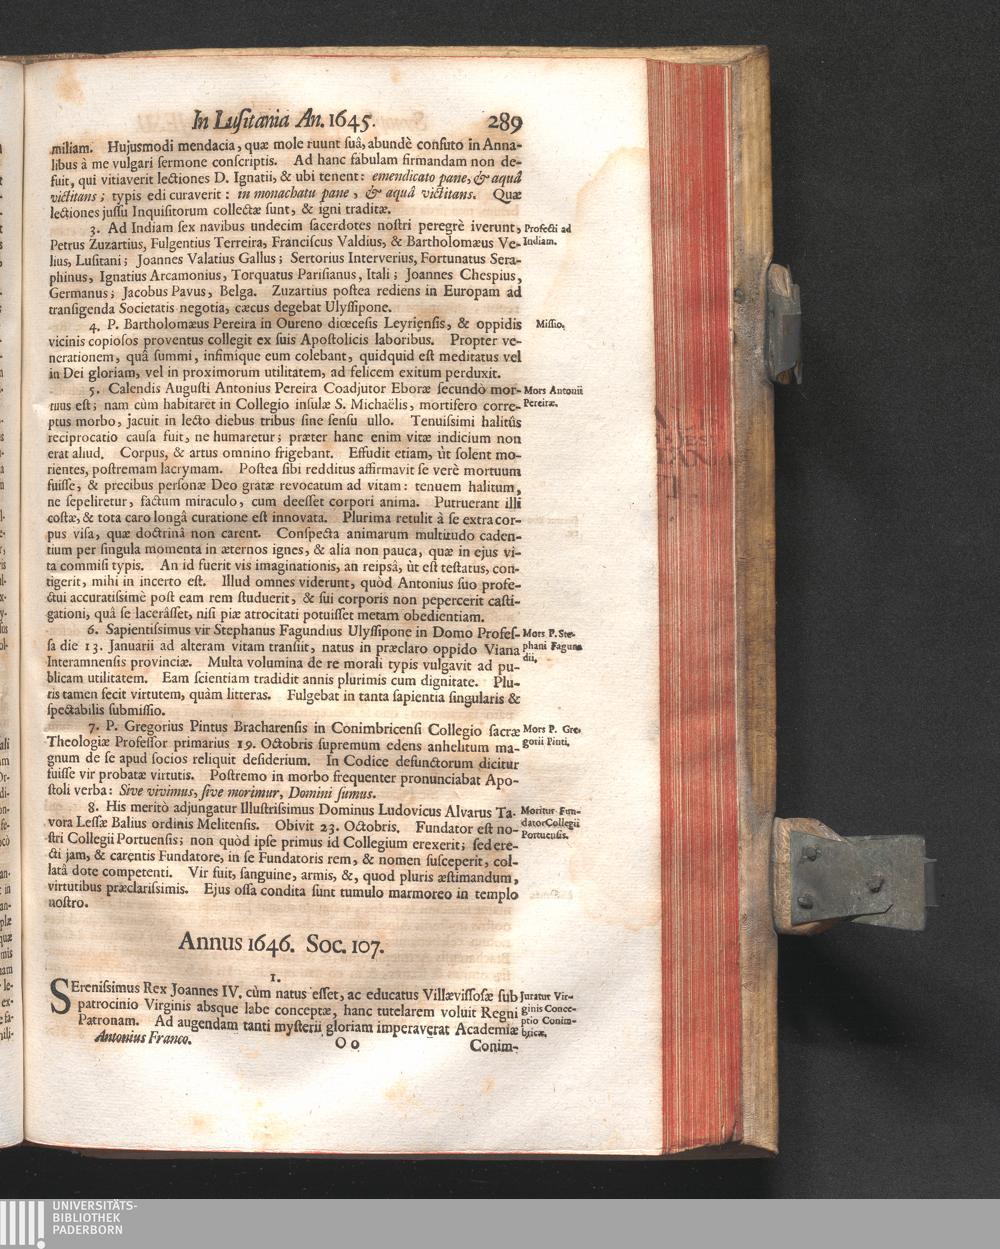 In Luſitania An. 1645. 289
miliam. Hujusmodi mendacia, quæ mole ruunt ſuâ, abundè confuto in Anna-
libus à me vulgari ſermone conſcriptis. Ad hanc fabulam firmandam non de-
fuit, qui vitiaverit lectiones D. Ignatii, & ubi tenent: emendicato pane, & aquâ
victitans; typis edi curaverit: in monachatu pane, & aquâ victitans. Quæ
lectiones juſſu Inquiſitorum collectæ ſunt, & igni traditæ.
3. Ad Indiam ſex navibus undecim ſacerdotes noſtri peregrè iverunt,
Profecti ad
Indiam.
Petrus Zuzartius, Fulgentius Terreira, Franciſcus Valdius, & Bartholomæus Ve-
lius, Luſitani; Joannes Valatius Gallus; Sertorius Interverius, Fortunatus Sera-
phinus, Ignatius Arcamonius, Torquatus Pariſianus, Itali; Joannes Cheſpius,
Germanus; Jacobus Pavus, Belga. Zuzartius poſtea rediens in Europam ad
tranſigenda Societatis negotia, cæcus degebat Ulyſſipone.
4. P. Bartholomæus Pereira in Oureno diœceſis Leyrienſis, & oppidis
Miſſio.
vicinis copioſos proventus collegit ex ſuis Apoſtolicis laboribus. Propter ve-
nerationem, quâ ſummi, infimique eum colebant, quidquid eſt meditatus vel
in Dei gloriam, vel in proximorum utilitatem, ad felicem exitum perduxit.
5. Calendis Auguſti Antonius Pereira Coadjutor Eboræ ſecundò mor-
Mors Antonii
Pereiræ.
tuus eſt; nam cùm habitaret in Collegio inſulæ S. Michaëlis, mortifero corre-
ptus morbo, jacuit in lecto diebus tribus ſine ſenſu ullo. Tenuiſſimi halitûs
reciprocatio cauſa fuit, ne humaretur; præter hanc enim vitæ indicium non
erat aliud. Corpus, & artus omnino frigebant. Effudit etiam, ùt ſolent mo-
rientes, poſtremam lacrymam. Poſtea ſibi redditus affirmavit ſe verè mortuum
fuiſſe, & precibus perſonæ Deo gratæ revocatum ad vitam: tenuem halitum,
ne ſepeliretur, factum miraculo, cum deeſſet corpori anima. Putruerant illi
coſtæ, & tota caro longâ curatione eſt innovata. Plurima retulit à ſe extra cor-
pus viſa, quæ doctrinâ non carent. Conſpecta animarum multitudo caden-
tium per ſingula momenta in æternos ignes, & alia non pauca, quæ in ejus vi-
ta commiſi typis. An id fuerit vis imaginationis, an reipsâ, ùt eſt teſtatus, con-
tigerit, mihi in incerto eſt. Illud omnes viderunt, quòd Antonius ſuo profe-
ctui accuratiſſimè poſt eam rem ſtuduerit, & ſui corporis non pepercerit caſti-
gationi, quâ ſe lacerâſſet, niſi piæ atrocitati potuiſſet metam obedientiam.
6. Sapientiſſimus vir Stephanus Fagundius Ulyſſipone in Domo Profeſ-
Mors P. Ste-
phani Fagun-
dii.
ſa die 13. Januarii ad alteram vitam tranſiit, natus in præclaro oppido Viana
Interamnenſis provinciæ. Multa volumina de re morali typis vulgavit ad pu-
blicam utilitatem. Eam ſcientiam tradidit annis plurimis cum dignitate. Plu-
ris tamen fecit virtutem, quàm litteras. Fulgebat in tanta ſapientia ſingularis &
ſpectabilis ſubmiſſio.
7. P. Gregorius Pintus Bracharenſis in Conimbricenſi Collegio ſacræ
Mors P. Gre-
gorii Pinti.
Theologiæ Profeſſor primarius 19. Octobris ſupremum edens anhelitum ma-
gnum de ſe apud ſocios reliquit deſiderium. In Codice defunctorum dicitur
fuiſſe vir probatæ virtutis. Poſtremo in morbo frequenter pronunciabat Apo-
ſtoli verba: Sive vivimus, ſive morimur, Domini ſumus.
8. His meritò adjungatur Illuſtriſſimus Dominus Ludovicus Alvarus Ta-
Moritur Fun-
dator Collegii
Portuenſis.
vora Leſſæ Balius ordinis Melitenſis. Obivit 23. Octobris. Fundator eſt no-
ſtri Collegii Portuenſis; non quòd ipſe primus id Collegium erexerit; ſed ere-
cti jam, & carentis Fundatore, in ſe Fundatoris rem, & nomen ſuſceperit, col-
latâ dote competenti. Vir fuit, ſanguine, armis, &, quod pluris æſtimandum,
virtutibus præclariſſimis. Ejus oſſa condita ſunt tumulo marmoreo in templo
noſtro.
Annus 1646. Soc. 107.
1.
SErenîſſimus Rex Joannes IV. cùm natus eſſet, ac educatus Villæviſſoſæ ſub
Juratur Vir-
ginis Conce-
ptio Conim-
bricæ.
patrocinio Virginis absque labe conceptæ, hanc tutelarem voluit Regni
Patronam. Ad augendam tanti myſterii gloriam imperaverat Academiæ
Antonius Franco. O o Conim-
UNIVERSITÄTS-
BIBLIOTHEK
PADERBORN